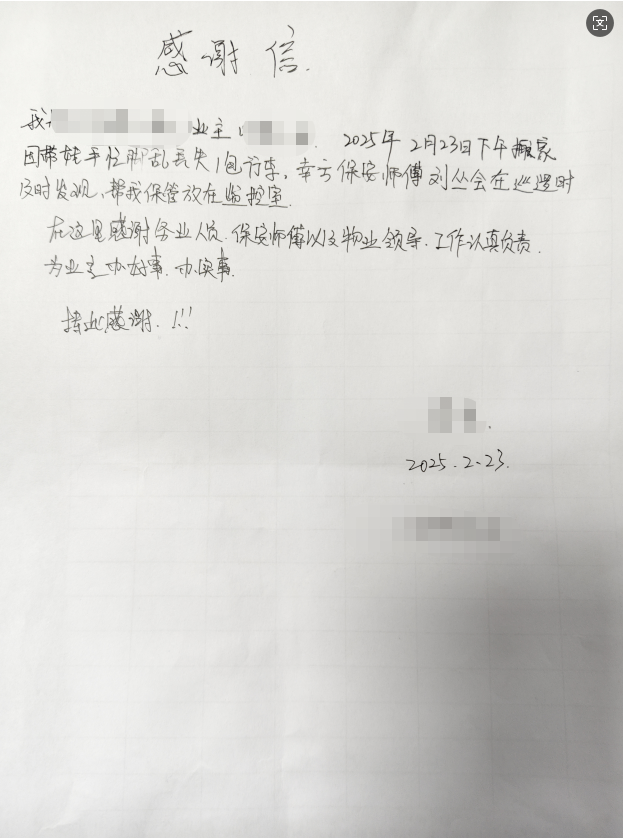 感谢信.
我 业主 . 2025年2月23日下午搬家
因带娃手忙脚乱丢失1包行李,幸亏保安师傅刘丛会在巡逻时
及时发现,帮我保管放在监控室.
在这里感谢务业人员.保安师傅以及物业领导.工作认真负责.
为业主办好事.办实事.
特此感谢.!!!
2025.2.23.